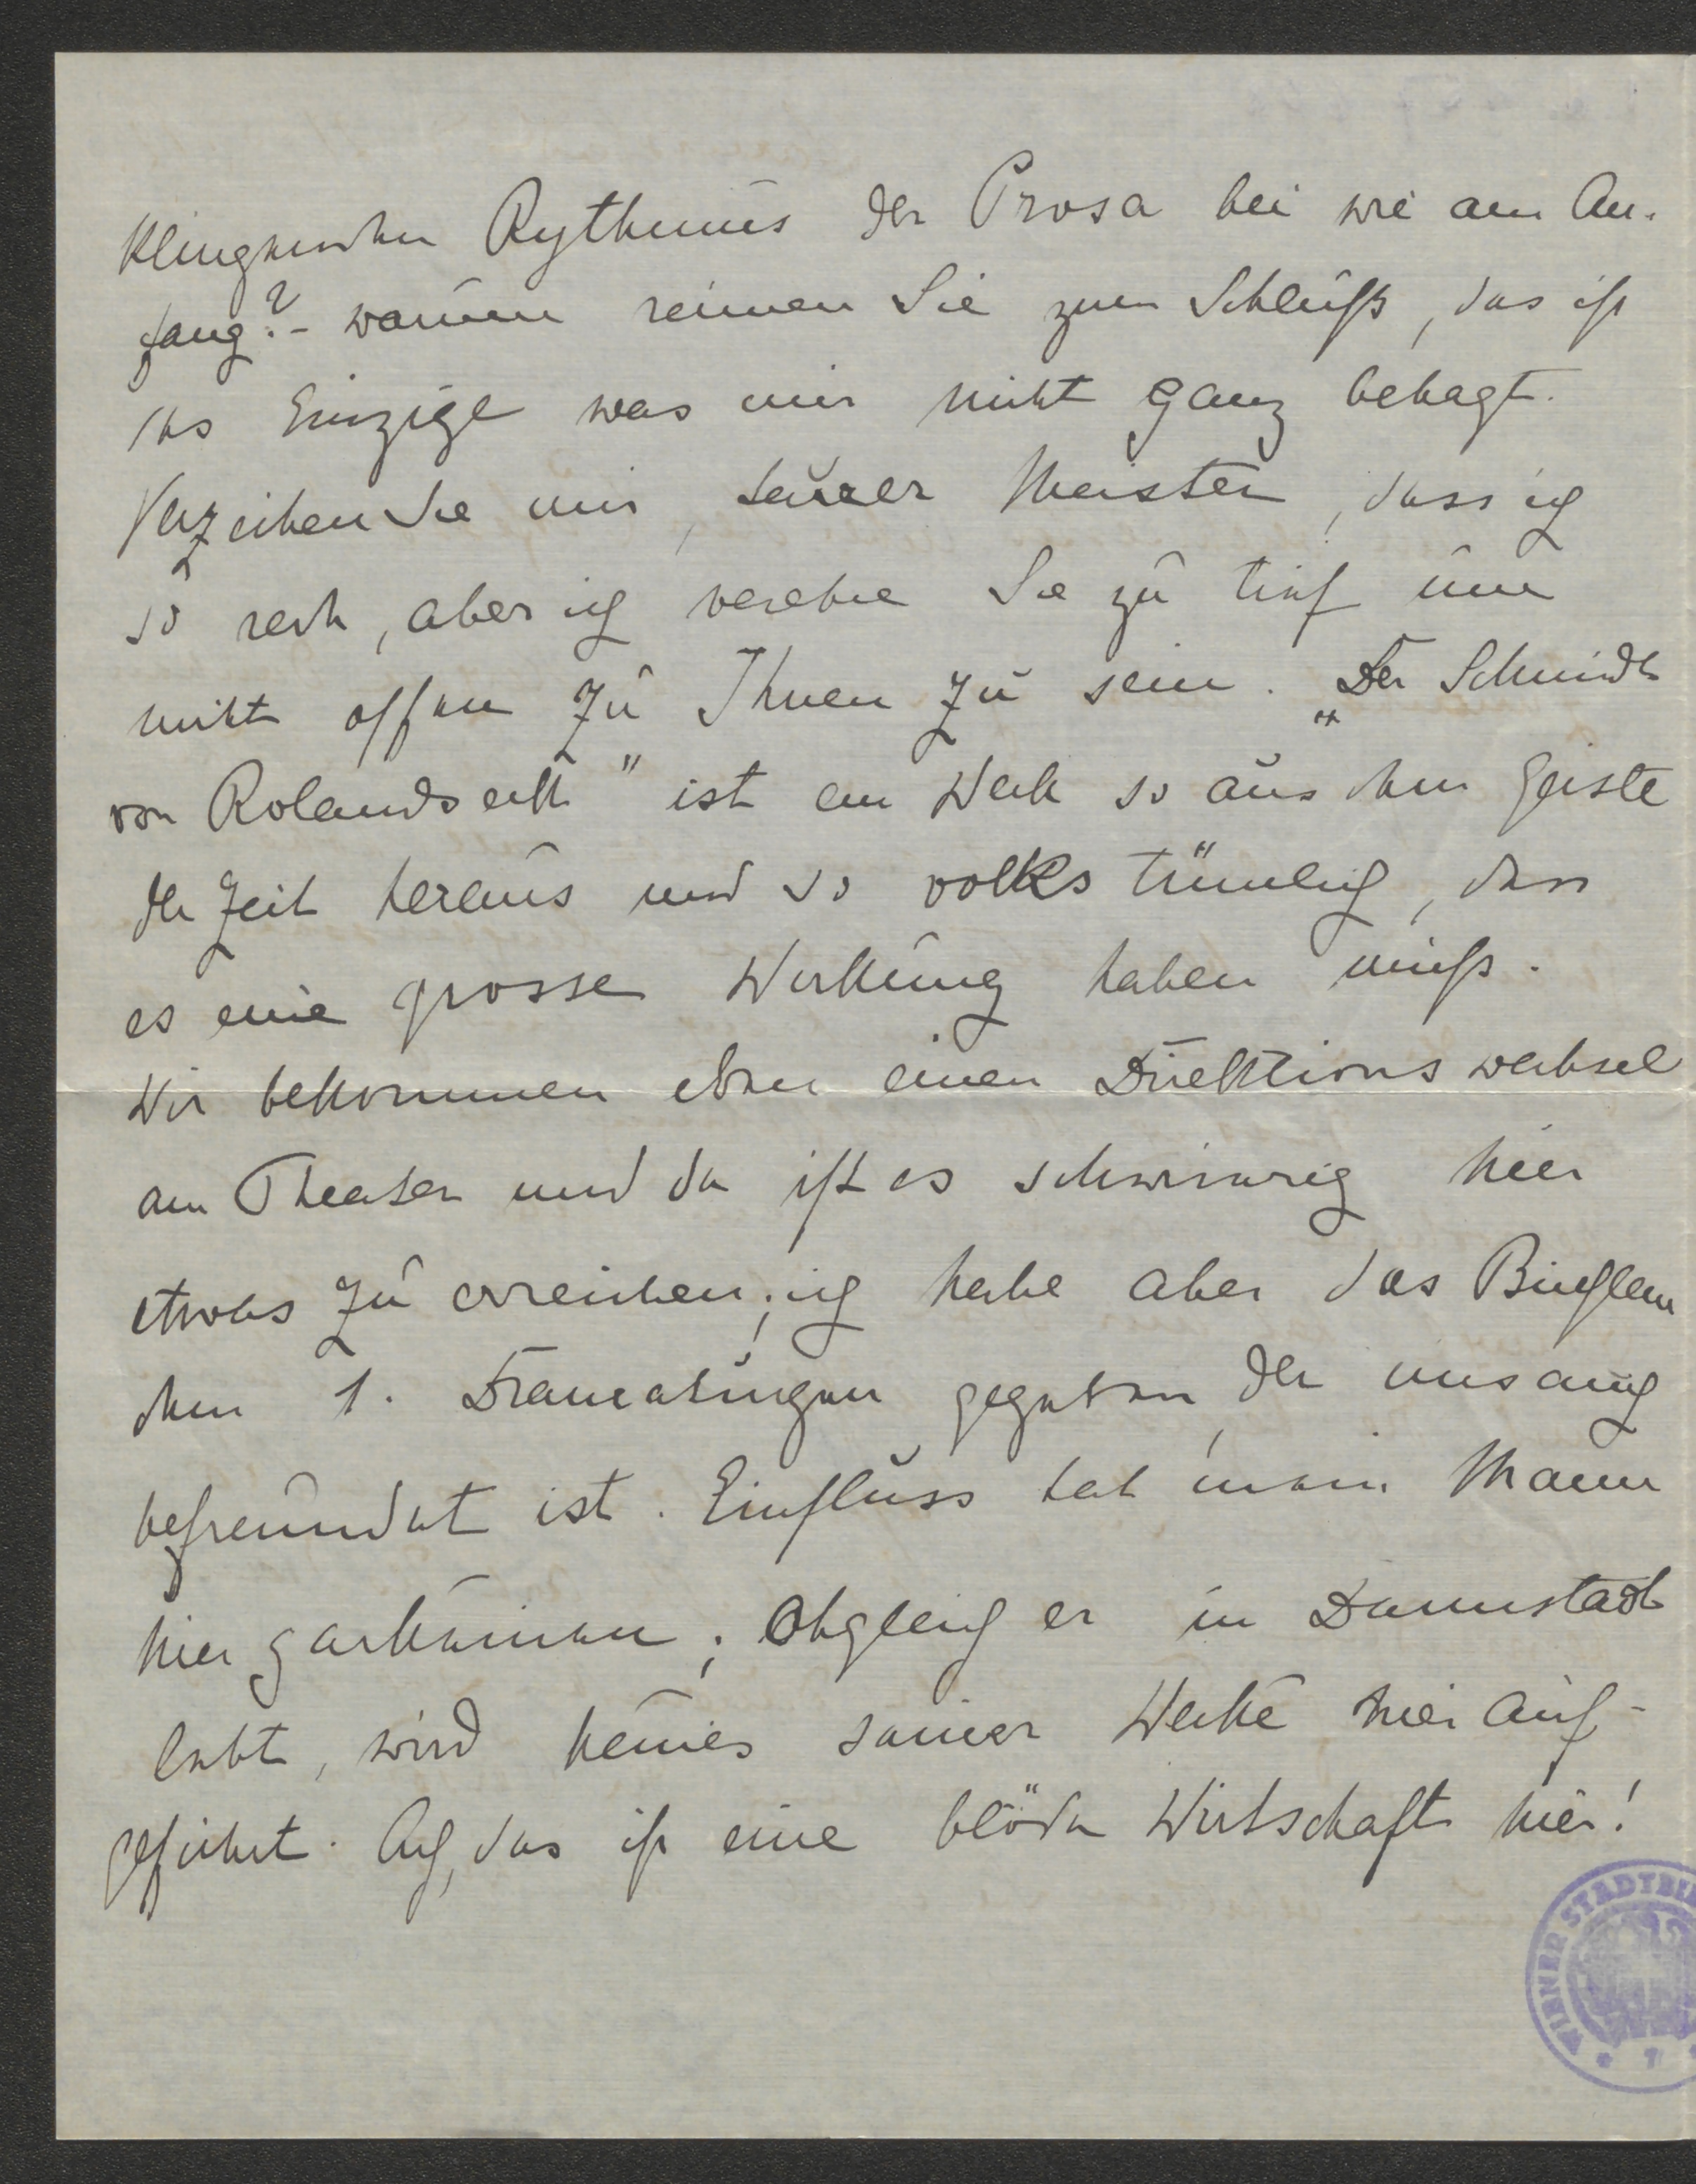 klingenden Rythmus der Prosa bei wie am An-
fang? - warum reimen Sie zum Schluß, das ist
das Einzige was mir nicht ganz behagt.
Verzeihen Sie mir, teurer Meister, dass ich
so rede, aber ich verehre Sie zu tief um
nicht offen zu Ihnen zu sein. „Der Schmidt
von Rolandseck" ist ein Werk so aus dem Geiste
der Zeit heraus und so volkstümlich, dass
es eine grosse Wirkung haben muß.
Wir bekommen eben einen Direktionswechsel
am Theater und da ist es schwierig hier
etwas zu erreichen; ich habe aber das Büchlein
dem 1. Dramaturgen gegeben, der uns auch
befreundet ist. Einfluss hat mein Mann
hier garkeinen; Obgleich er in Darmstadt
lebt, wird keines seiner Werke hier auf-
geführt. Ach, das ist eine blöde Wirtschaft hier!
WIENER STADTBI